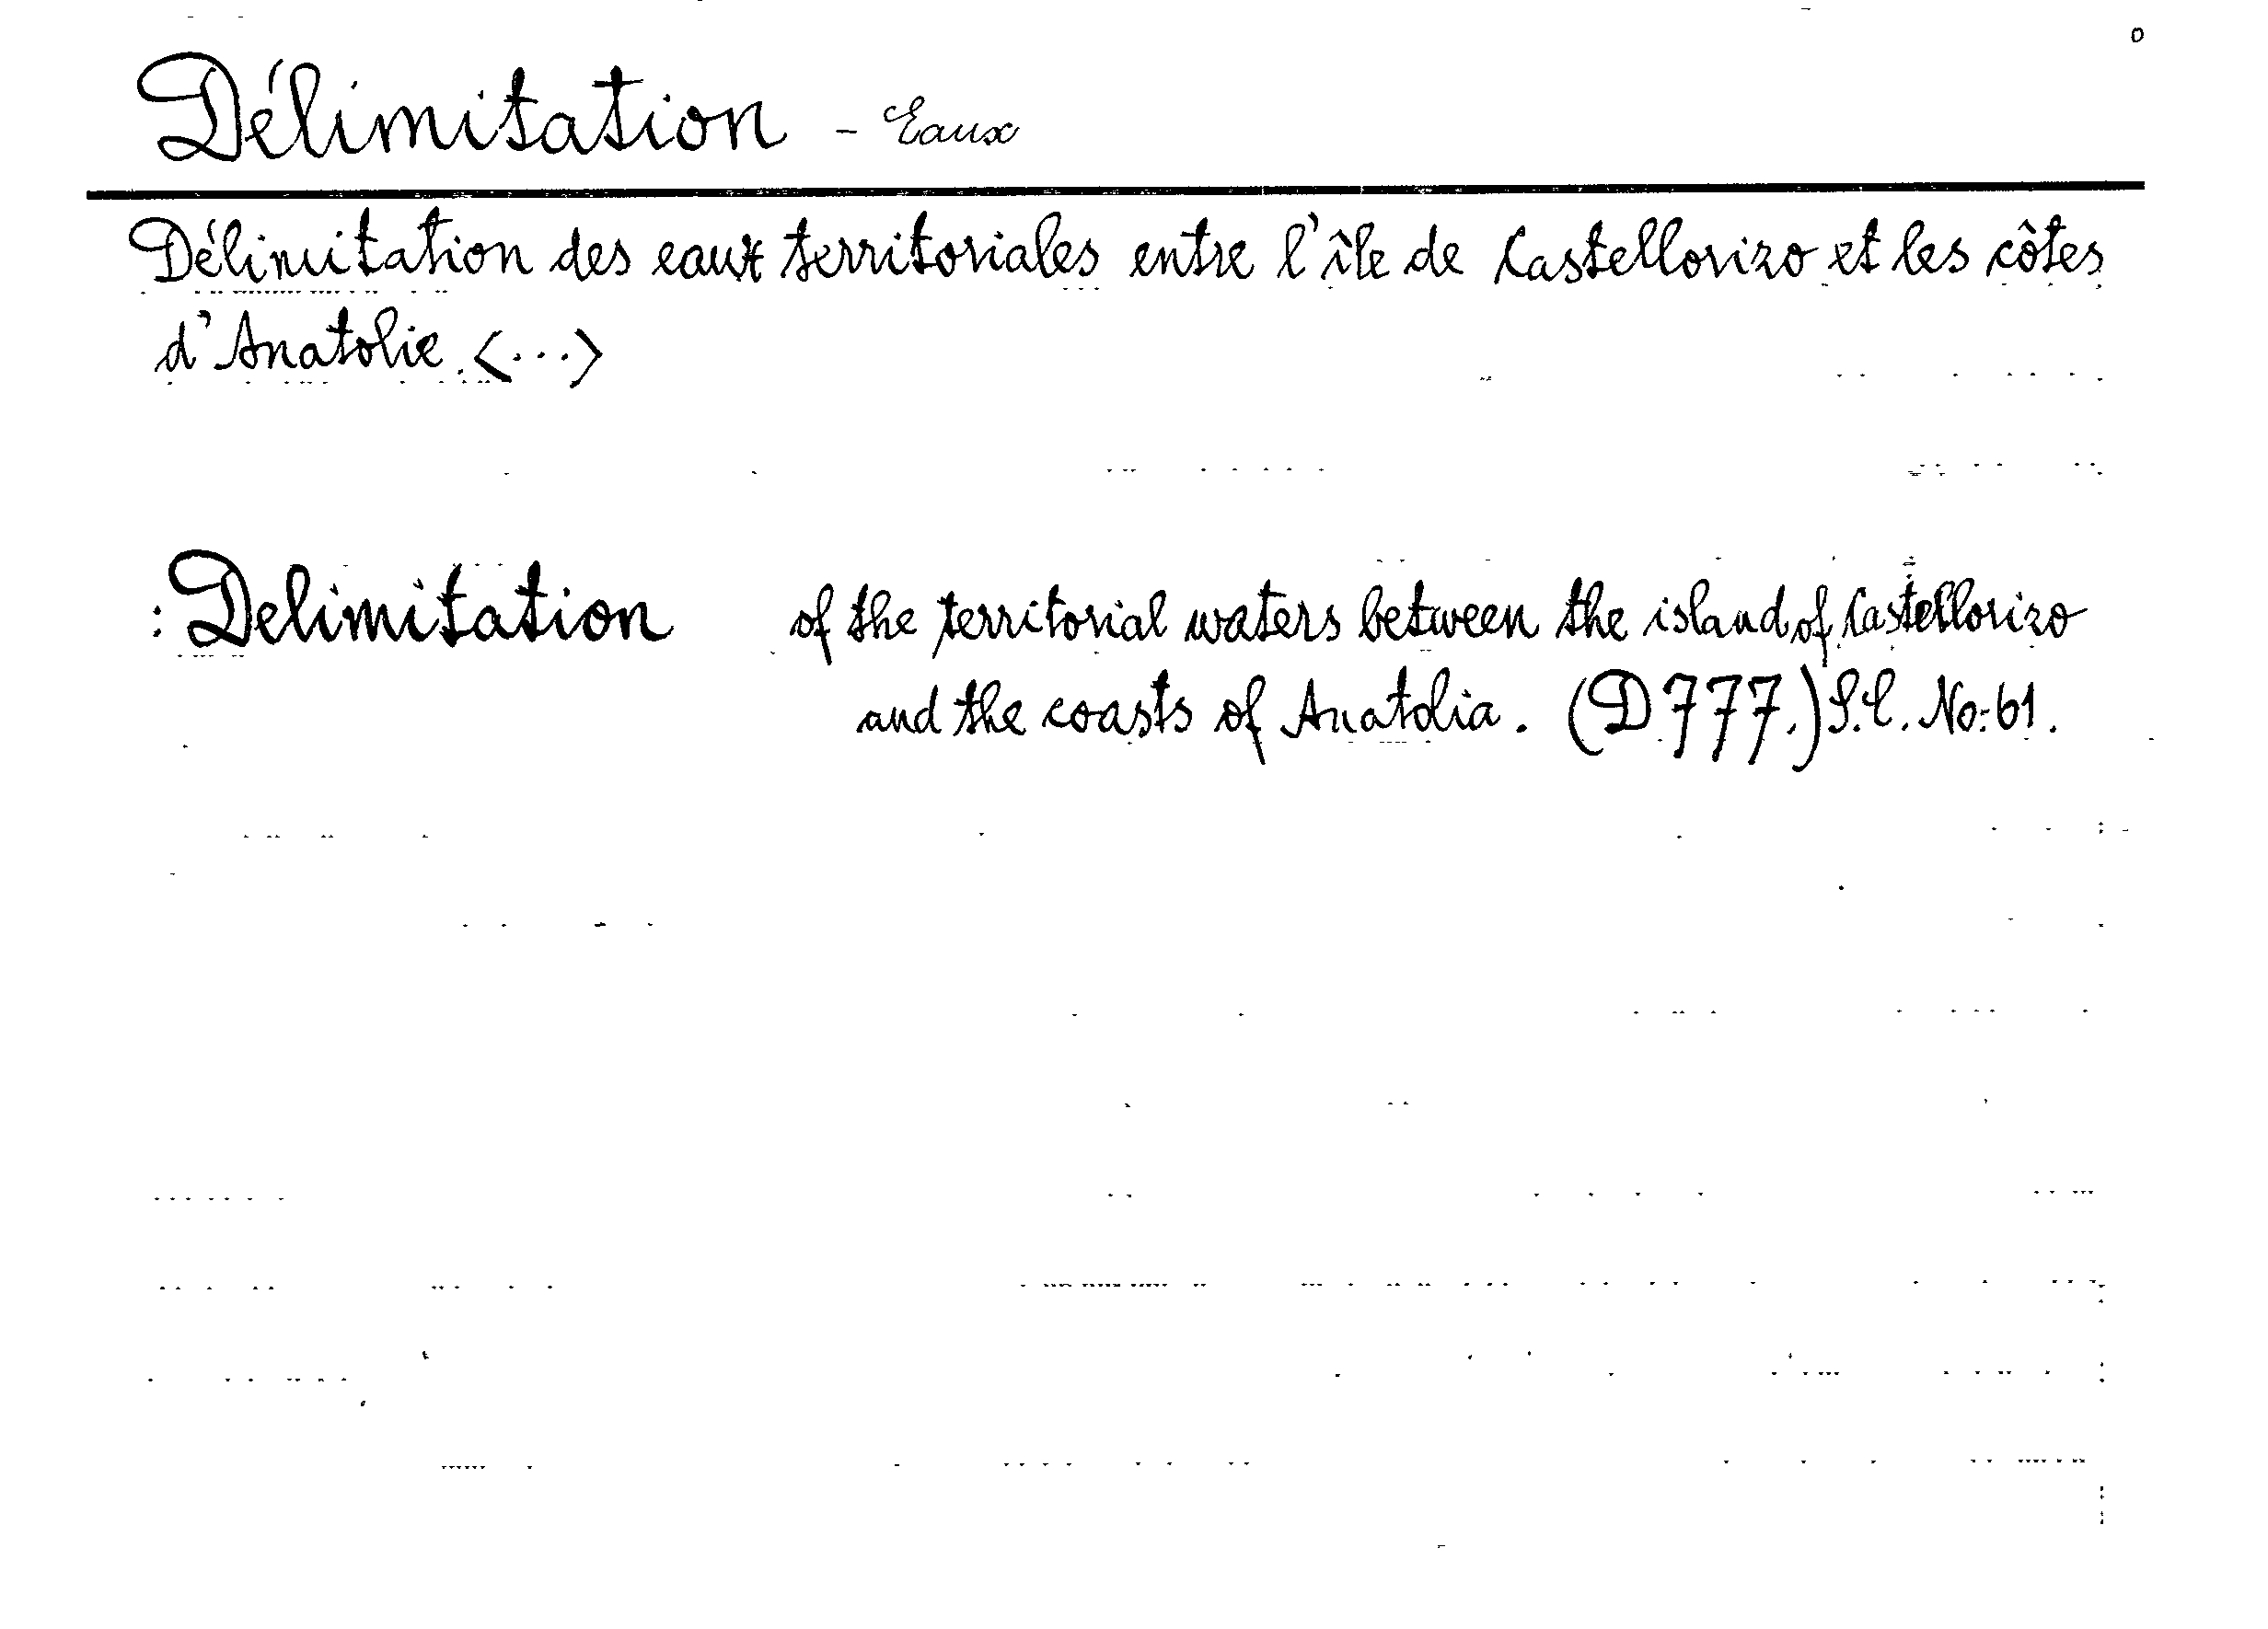 Délimitation - Eaux
Délimitation des eaux territoriales entre l'île de Castellorizo et les côtes
d'Anatolie. <...>
: Delimitation of the territorial waters between the island of Castellorizo
and the coasts of Anatolia. (D.777.) S.C. No: 61.